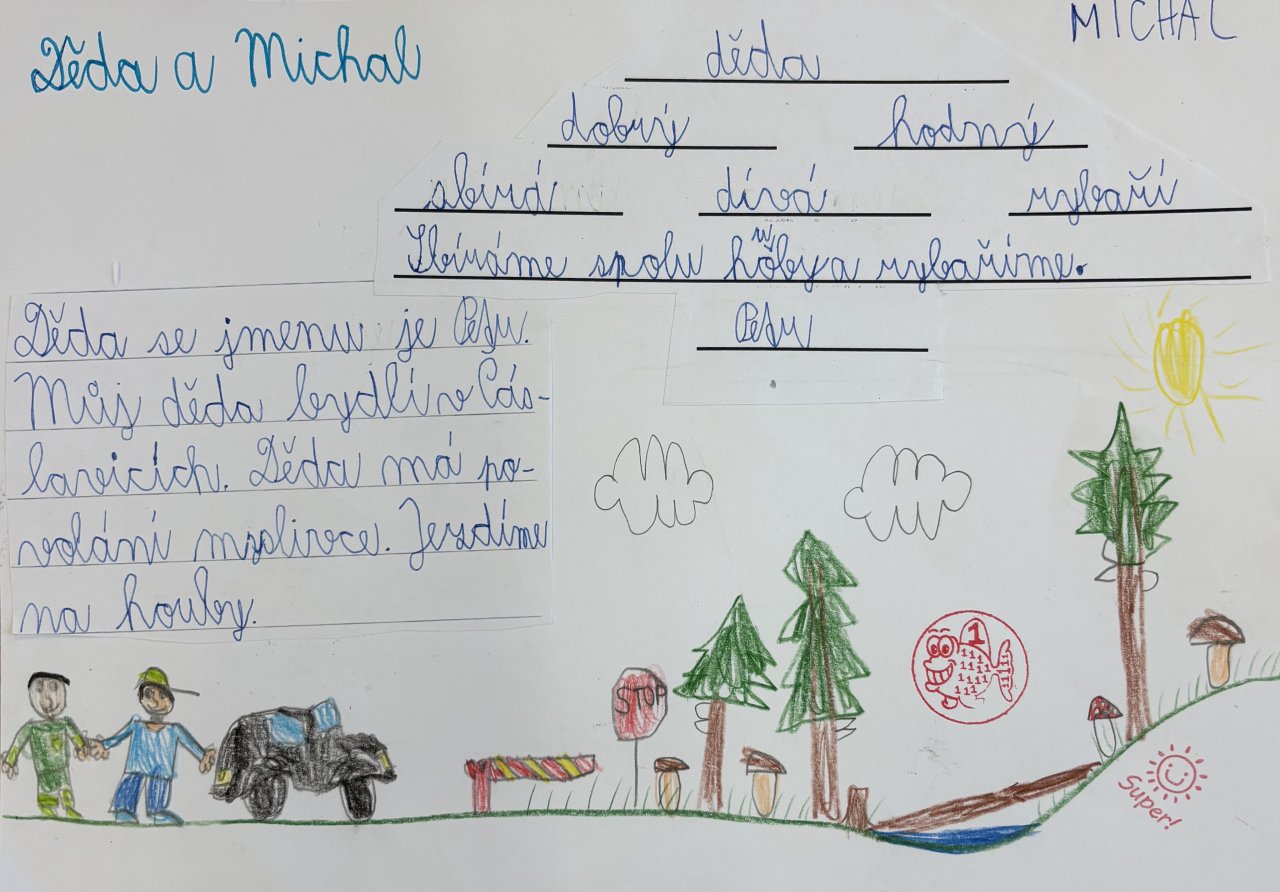 MICHAL
Děda a Michal
děda
dobrý hodný
sbírá dívá rybaří
Sbíráme spolu houby a rybaříme.
Petr
Děda se jmenu je Petr.
Můj děda bydlí v Čás-
lavicích. Děda má po-
volání myslivce. Jezdíme
na houby.
STOP
1
111
1111
1111
111
1111
Super!